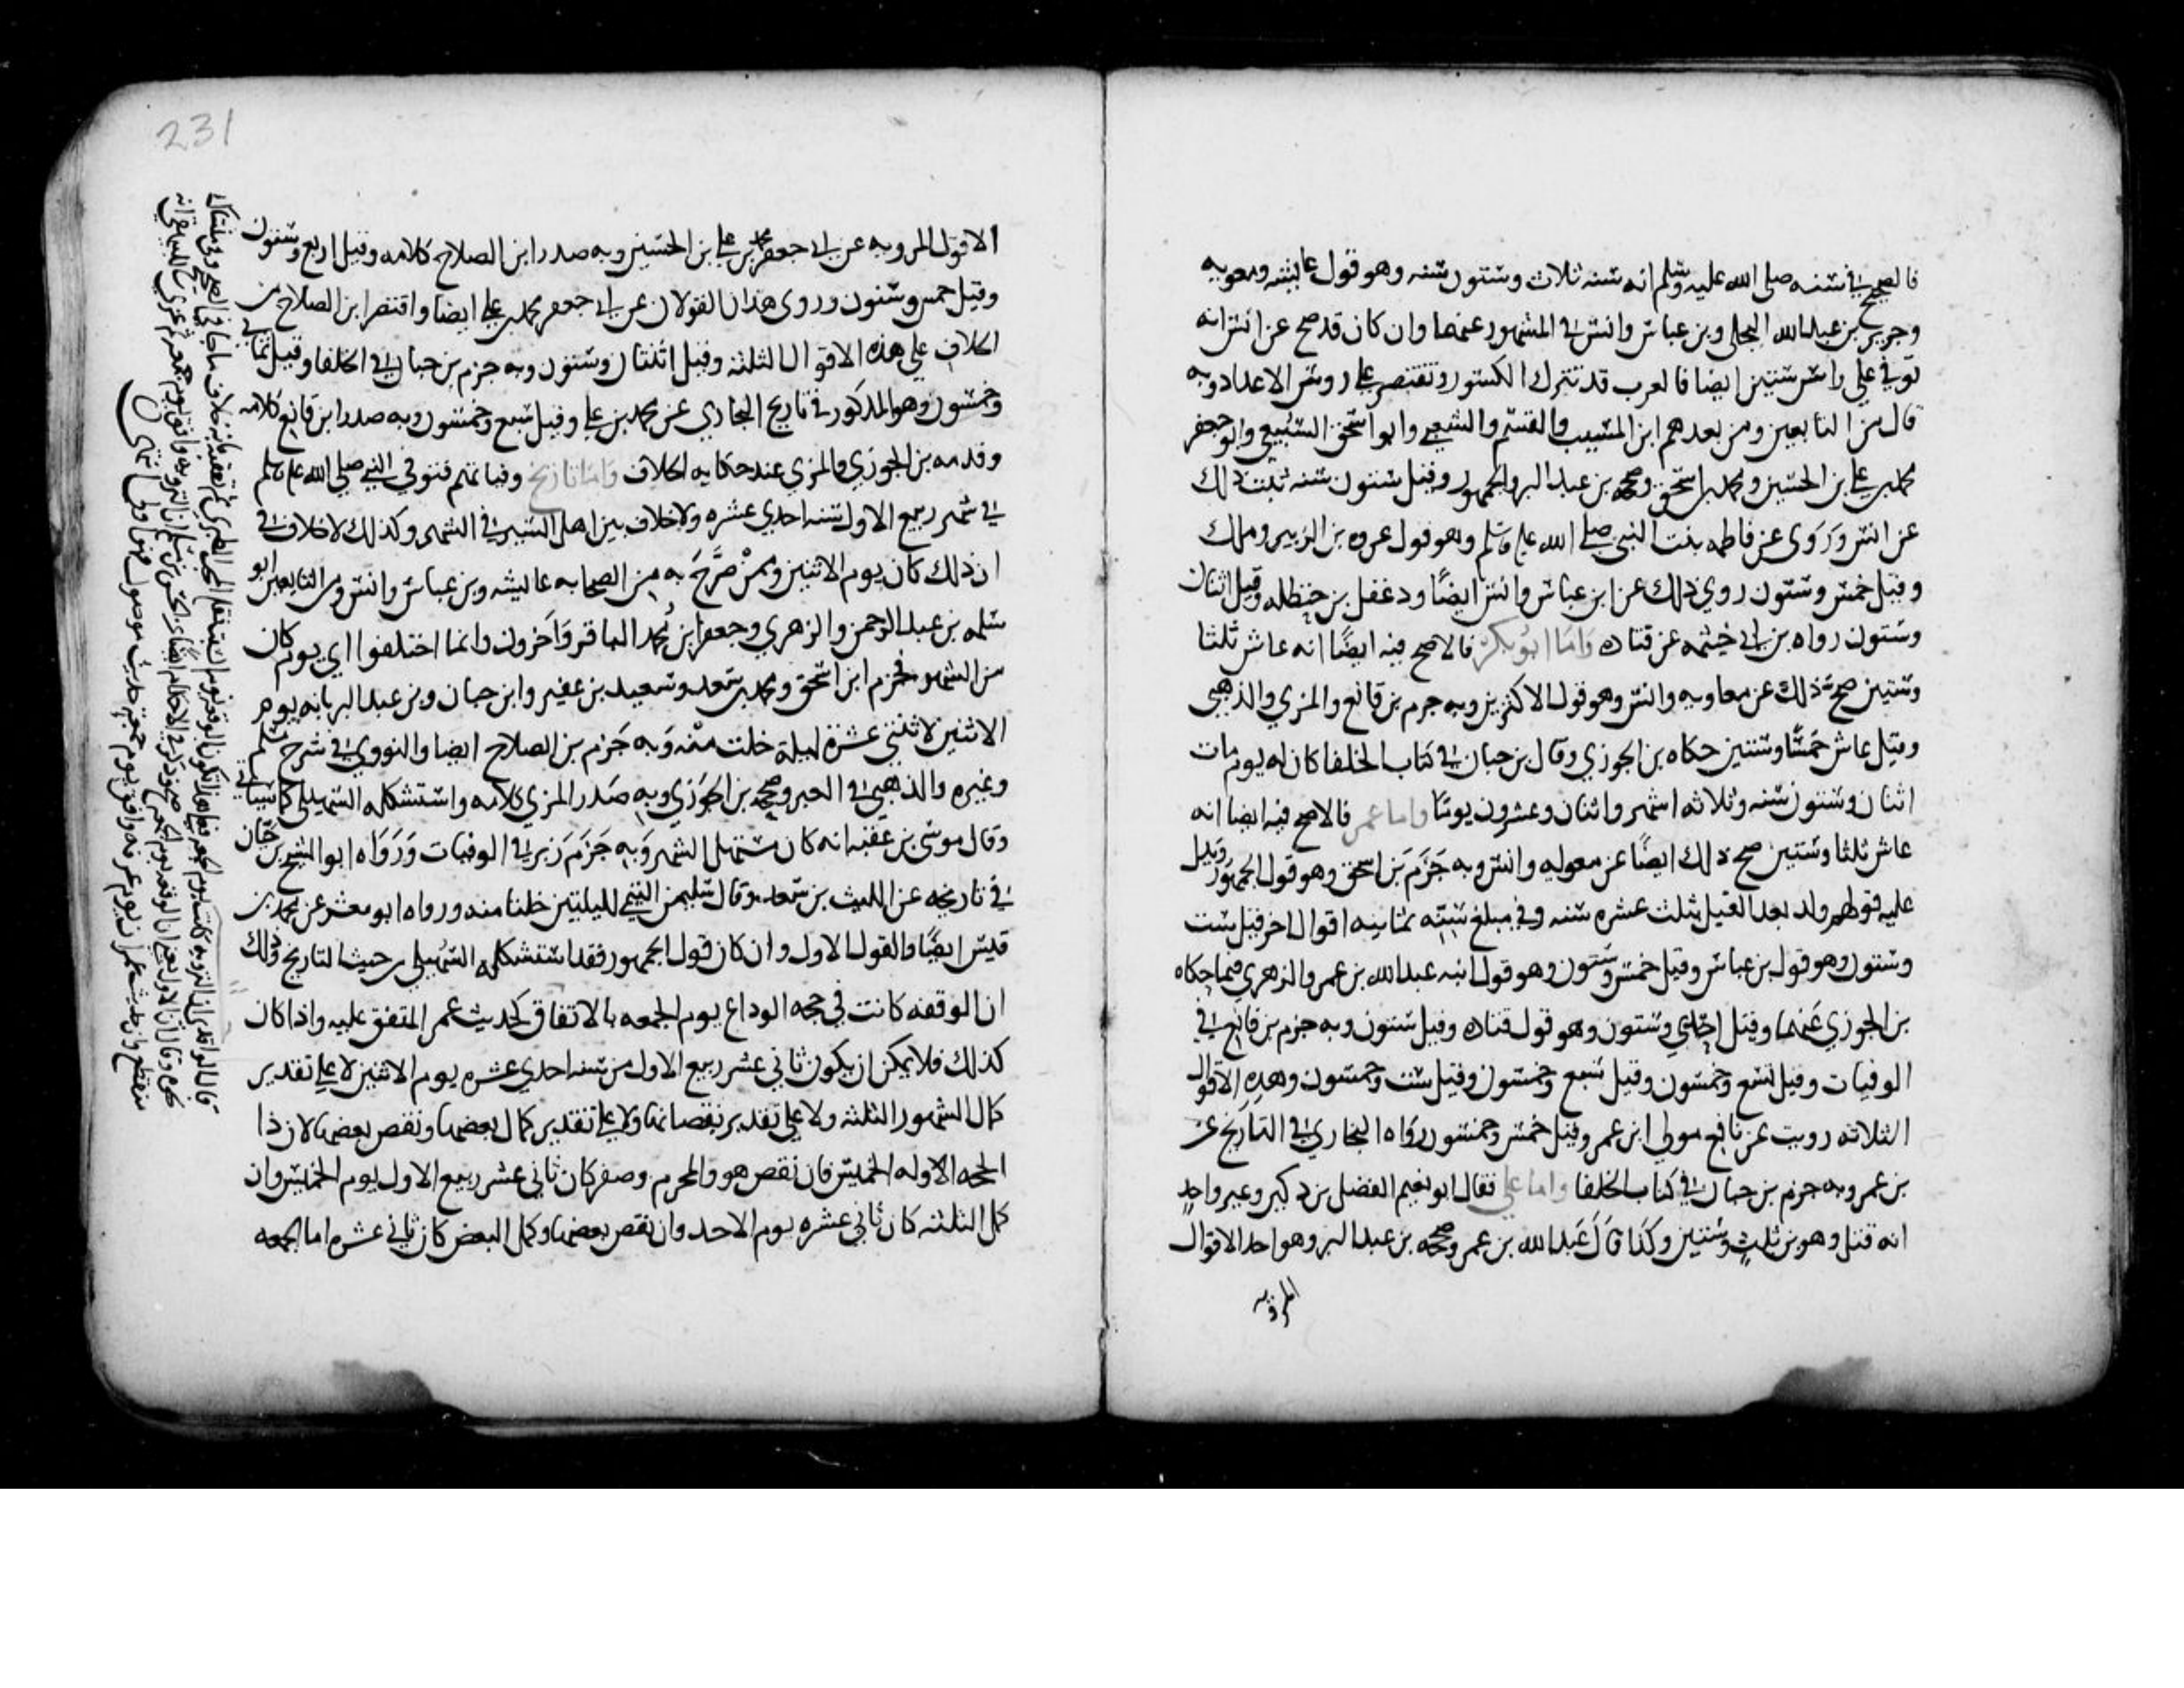 فالصحيح في سنه صلى الله عليه وسلم انه سنه ثلاث وستون سنه وهو قول عائشه ومعويه
وجرير بن عبدالله البجلي وبن عباس وانس في المشهور عنهما وان كان قد صح عن انس انه
توفي على راس ستين ايضا فالعرب قد تترك الكسور وتقتصر على روس الاعداد وبه
قال من التابعين ومن بعدهم ابن المسيب والقسم والشعبي وابو اسحق السبيعي وابو جعفر
محمد بن علي بن الحسين ومحمد بن اسحق وصححه بن عبدالبر والجمهور وقيل ستون سنه ثبت ذلك
عن انس وروى عن فاطمه بنت النبي صلى الله عليه وسلم وهو قول عروه بن الزبير ومالك
وقيل خمس وستون روي ذلك عن ابن عباس وانس ايضًا ودغفل بن حنظله وقيل اثنان
وستون رواه بن ابي خيثمه عن قتاده واما ابو بكر فالاصح فيه ايضًا انه عاش ثلثا
وستين صح ذلك عن معاويه وانس وهو قول الاكثرين وبه جزم بن قانع والمزي والذهبي
وقيل عاش خمسًا وستين حكاه بن الجوزي وقال بن حبان في كتاب الخلفا كان له يوم مات
اثنان وستون سنه وثلاثه اشهر واثنان وعشرون يومًا واما عمر فالاصح فيه ايضا انه
عاش ثلثا وستين صح ذلك ايضًا عن معويه وانس وبه جَزَمَ بن اسحق وهو قول الجمهور ويدل
عليه قولهم ولد بعد الفيل بثلث عشره سنه وفي مبلغ سنه ثمانيه اقوال اخر قيل ست
وستون وهو قول بن عباس وقيل خمس وستون وهو قول ابنه عبدالله بن عمر والزهري فيما حكاه
بن الجوزي عنهما وقيل احدي وستون وهو قول قتاده وقيل ستون وبه جزم بن قانع في
الوفيات وقيل تسع وخمسون وقيل سبع وخمسون وقيل ست وخمسون وهذه الاقوال
الثلاثه رويت عن نافع مولى ابن عمر وقيل خمس وخمسون رواه البخاري في التاريخ عن
بن عمر وبه جزم بن حبان في كتاب الخلفا واما علي فقال ابو نعيم الفضل بن دكين وغير واحدٍ
انه قتل وهو بن ثلثٍ وستين وكذا قال عَبدالله بن عمر وصححه بن عبدالبر وهو احد الاقوال
المرويه
231
الاقوال المرويه عن ابي جعفر محمد بن علي بن الحسين وبه صدر ابن الصلاح كلامه وقيل اربع وستون
وقيل خمس وستون وروى هذان القولان عن ابي جعفر محمد بن علي ايضا واقتصر ابن الصلاح من
الخلاف على هذه الاقوال الثلثه وقيل اثنتان وستون وبه جزم بن حبان في الخلفا وقيل ثمان
وخمسون وهو المذكور في تاريخ البخاري عن محمد بن علي وقيل سبع وخمسون وبه صدر ابن قانع كلامه
وقدمه بن الجوزي والمزي عند حكايه الخلاف واما تاريخ وفياتهم فتوفي النبي صلى الله عليه وسلم
في شهر ربيع الاول سنه احدي عشره ولا خلاف بين اهل السير في الشهر وكذلك لا خلاف في
ان ذلك كان يوم الاثنين وممن صَرَّحَ به من الصحابه عائشه وبن عباس وانس ومن التابعين ابو
سلمه بن عبد الرحمن والزهري وجعفر ابن مُحمد الباقر وَآخرون وانما اختلفوا اي يوم كان
من الشهر فجزم ابن اسحق ومحمد بن سعد وسعيد بن عفير وابن حبان وبن عبدالبر بانه يوم
الاثنين لاثنتي عشرة ليلة خلت منه وَبه جَزم بن الصلاح ايضا والنووي في شرح مسلم
وغيره والذهبي في العبر وصححه بن الجَوزي وبه صَدر المزي كلامه واستشكله السهيلي كما سياتي
وقال موسى بن عقبه انه كان مستهل الشهر وَبه جَزَم بن زبر في الوفيات وَرَوَاه ابو الشيخ بن حيان
في تاريخه عن الليث بن سعد وقال سليمن التيمي لليلتين خلتا منه ورواه ابو معشر عن محمد بن
قيس ايضًا والقول الاول وان كان قول الجمهور فقد استشكله السُهيلي من حيث التاريخ وذلك
ان الوقفه كانت في حجه الوداع يوم الجمعه بالاتفاق لحديث عمر المتفق عليه واذا كان
كذلك فلا يمكن ان يكون ثاني عشر ربيع الاول من سنه احدي عشره يوم الاثنين لا على تقدير
كمال الشهور الثلثه ولا على تقدير نقصانها ولا على تقدير كمال بعضها ونقص بعضها لان ذا
الحجه الاوله الخميس فان نقص هو والمحرم وصفر كان ثاني عشر ربيع الاول يوم الخميس وان
كمل الثلثه كان ثاني عشره يوم الاحد وان نقص بعضها وكمل البعض كان ثاني عشره اما الجمعه